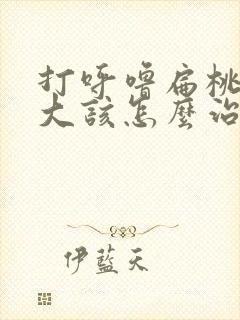 打呼噜扁桃
大该怎麼治
伊蓝天